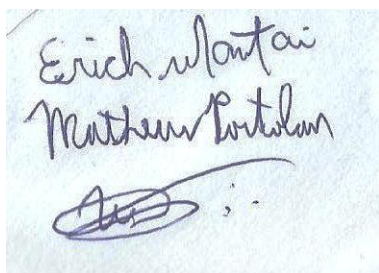 Erich Montai
Matheus Portolan